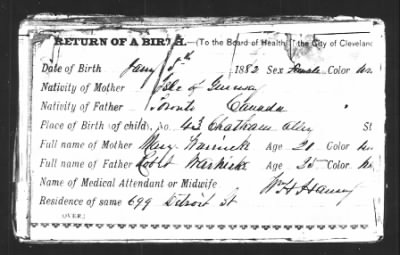 RETURN OF A BIRTH.—(To the Board of Health of the City of Cleveland
Date of Birth Jany 5th 1882 Sex Female Color
Nativity of Mother Isle of Guernsey
Nativity of Father Toronto Canada "
Place of Birth (of child), No. 43 Chatham alley St
Full name of Mother Mary Warnick Age 20 Color
Full name of Father Robt Warnick Age 25 Color
Name of Medical Attendant or Midwife Wm H
Residence of same 699 Detroit St
(OVER.)